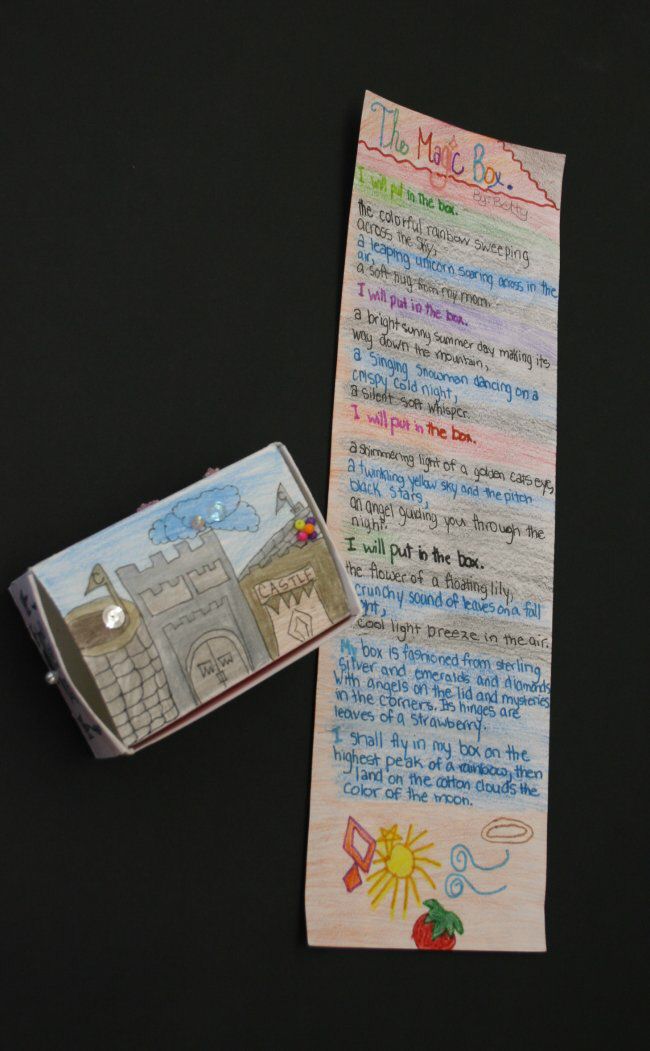 The Magic Box.
By: Betty
I will put in the box.
the colorful rainbow sweeping
across the sky,
a leaping unicorn soaring across in the
air,
a soft hug from my mom.
I will put in the box.
a bright sunny summer day making its
way down the mountain,
a singing snowman dancing on a
crispy cold night,
a silent soft whisper.
I will put in the box.
a shimmering light of a golden cats eye,
a twinkling yellow sky and the pitch
black stars,
an angel guiding you through the
night.
I will put in the box.
the flower of a floating lily,
crunchy sound of leaves on a fall
cool light breeze in the air.
My box is fashioned from sterling
silver and emeralds and diamonds
with angels on the lid and mysteries
in the corners. Its hinges are
leaves of a strawberry.
I shall fly in my box on the
highest peak of a rainbow, then
land on the cotton clouds the
color of the moon.
CASTLE